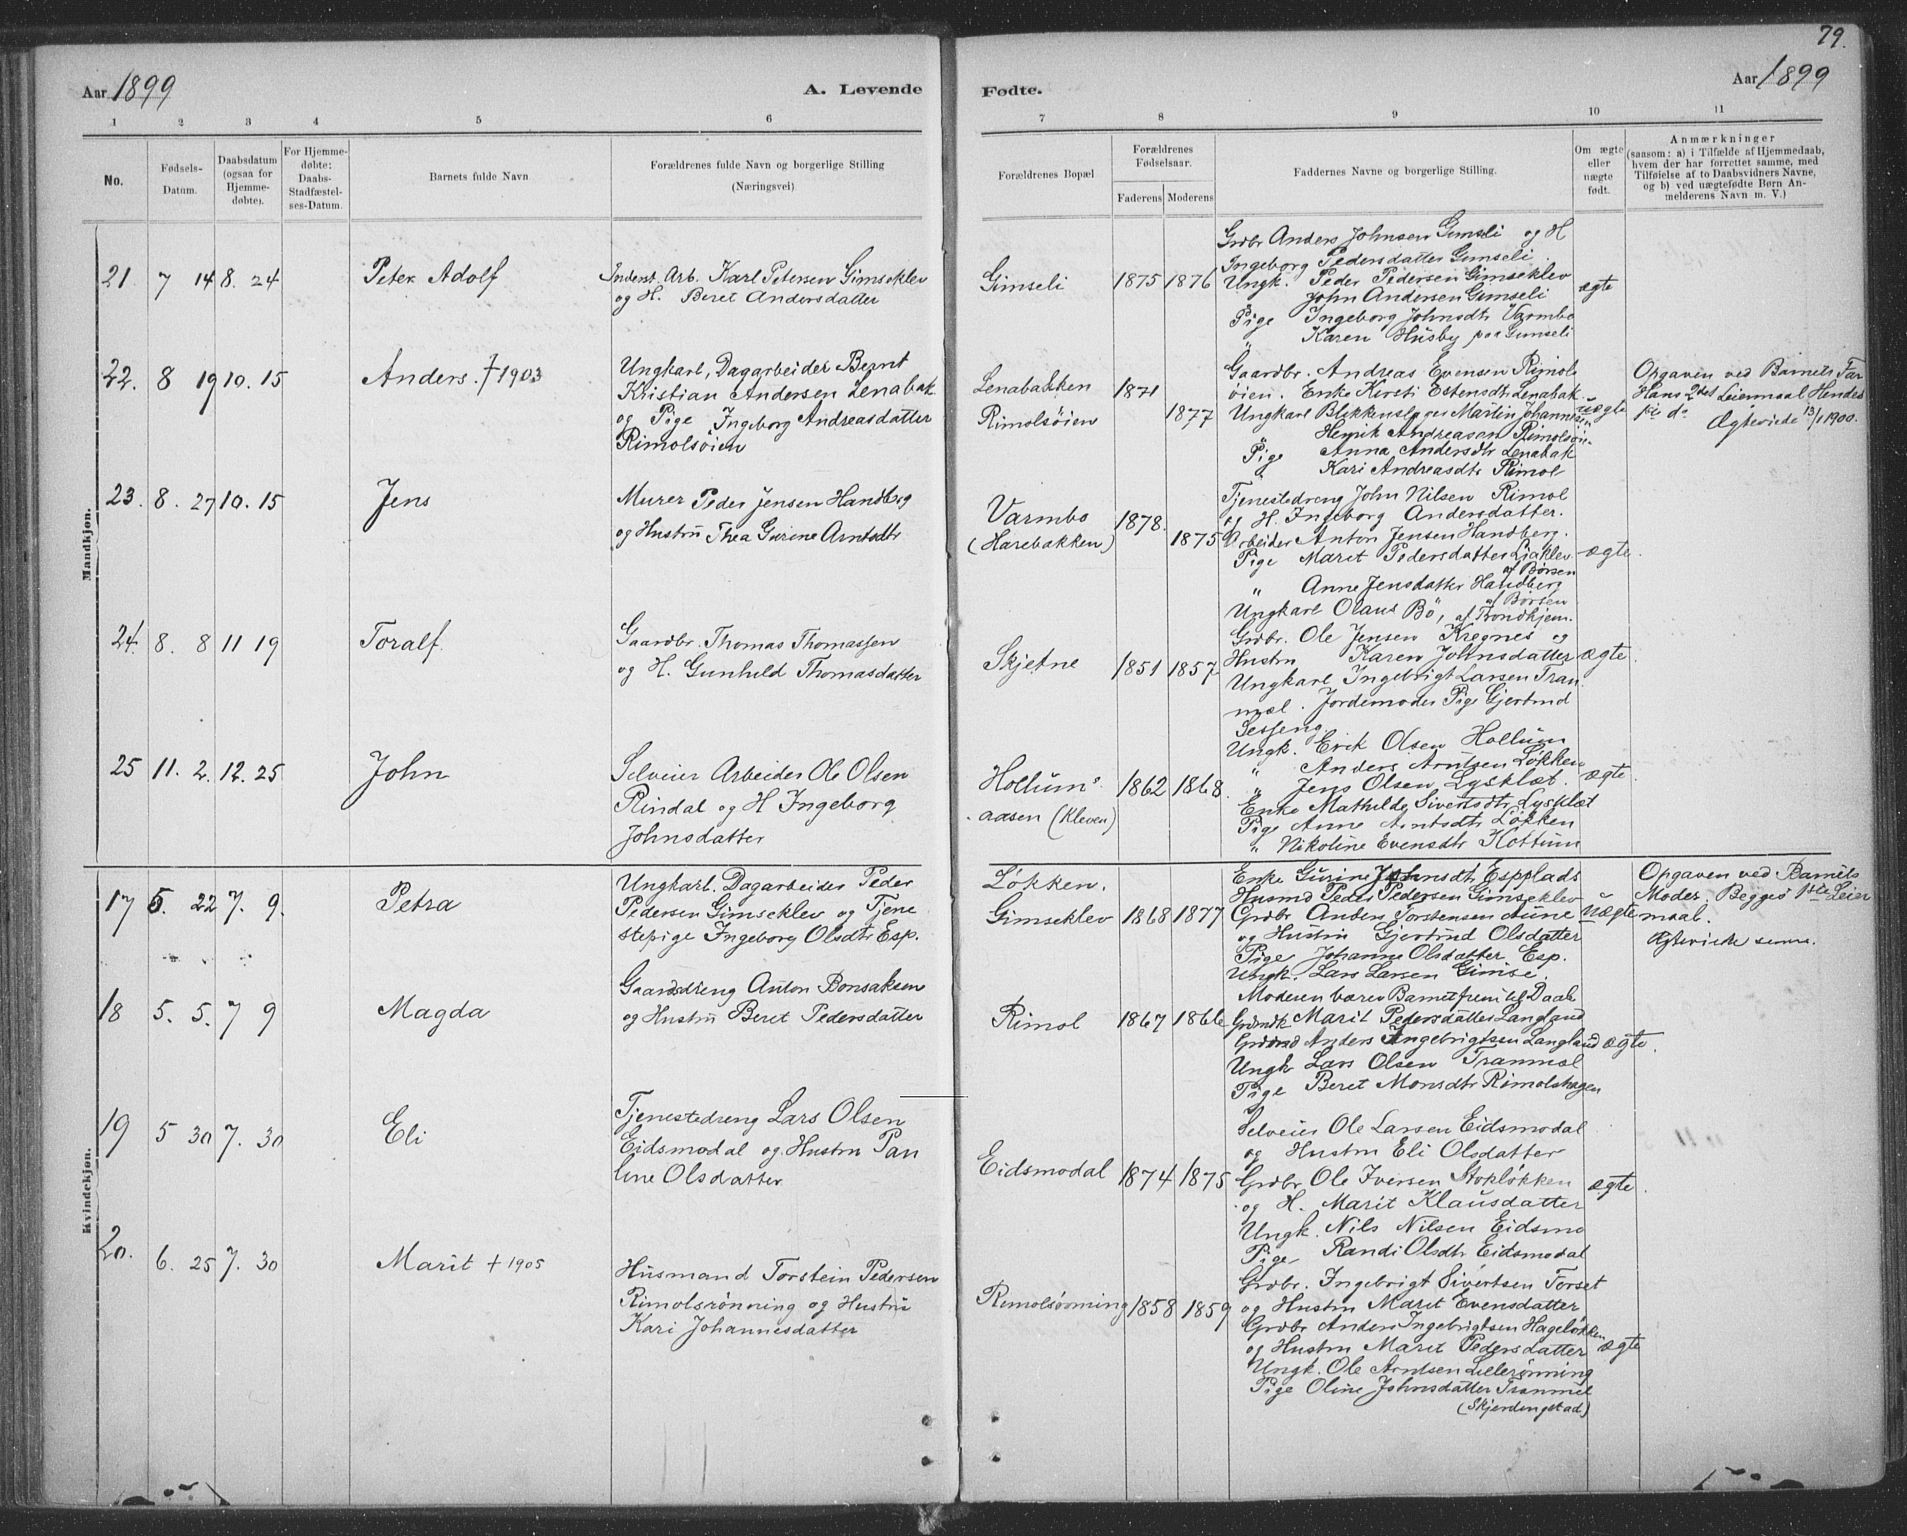 79.
Aar 1899
A. Levende
Fødte.
Aar 1899
1 2 3 4 5 6 7 8 9 10 11
No.
Fødsels-
Datum.
Daabsdatum
(ogsaa for
Hjemme-
døbte).
For Hjemme-
døbte:
Daabs-
Stadfæstel-
ses-Datum.
Barnets fulde Navn
Forældrenes fulde Navn og borgerlige Stilling
(Næringsvei)
Forældrenes Bopæl
Forældrenes
Fødselsaar.
Faderens Moderens
Faddernes Navne og borgerlige Stilling.
Om ægte
eller
uægte
født.
Anmærkninger
(saasom: a) i Tilfælde af Hjemmedaab,
hvem der har forrettet samme, med
Tilføielse af to Daabsvidners Navne,
og b) ved uægtefødte Børn An-
melderens Navn m. V.)
Mandkjøn.
21 7 14 8. 24 Peter Adolf
Inderst. Arb. Karl Petersen Gimseklev
og H. Beret Andersdatter
Gimseli 1875 1876
Grdbr Anders Johnsen Gimseli og H
Ingeborg Pedersdatter Gimseli.
Ungk. Peder Pedersen Gimseklev
John Andersen Gimseli
Pige Ingeborg Johnsdtr Varmbo
" Karen Husby paa Gimseli
ægte
22. 8 19 10. 15 Anders. † 1903
Ungkarl, Dagarbeider Bernt
Kristian Andersen Lenabak
og Pige Ingeborg Andreasdatter
Rimolsøien
Lenabakken 1871
Rimolsøien 1877
Gaardbr. Andreas Evensen Rimols
øien. Enke Kirsti Estensdtr Lenabak
Ungkarl Blikkenslager Martin Johannesen
" Henrik Andreasen Rimolsøien
Pige Anna Andersdtr Lenabak
" Kari Andreasdtr Rimol
uægte
Opgaven ved Barnets Far
Hans 2det Leiermaal Hendes
1ste do
Ægteviede 13/1 1900.
23. 8. 27 10. 15 Jens
Murer Peder Jensen Handberg
og Hustru Thea Gurine Arntsdtr
Varmbo
(Harebakken) 1878. 1875
Tjenestedreng John Nilsen Rimol
og H. Ingeborg Andersdatter.
Arbeider Anton Jensen Handberg.
Pige Marit Pedersdatter Liaklev
af Børsen
" Anne Jensdatter Handberg
af Børsen
Ungkarl Olaus Bö, af Trondhjem.
ægte.
24. 8. 8 11 19 Toralf.
Gaardbr. Thomas Thomassen
og H. Gunhild Thomasdatter
Skjetne 1851 1857
Grdbr. Ole Jensen Kregnes og
Hustru Karen Johnsdatter
Ungkarl Ingebrigt Larsen Tran
mæl. Jordemoder Pige Gjertrud
Sesseng
ægte.
25 11. 2. 12. 25 John
Selveier Arbeider Ole Olsen
Rindal og H Ingeborg
Johnsdatter
Hollums
aasen (Kleven) 1862 1868.
Ungk. Erik Olsen Hollum
" Anders Arntsen Løkken
" Jens Olsen Lysklæt.
Enke Mathilde Sivertsdtr Lysklæt
Pige Anne Arntsdtr Løkken
" Nikoline Evensdtr Hollum
ægte.
Kvindekjøn.
17 5. 22 7. 9. Petra
Ungkarl. Dagarbeider Peder
Pedersen Gimseklev og Tjene
stepige Ingeborg Olsdtr Esp.
Løkken.
Gimseklev 1868 1877
Enke Gurine Johnsdt Espplads
Husmd Peder Pedersen Gimseklev
Grdbr Anders Torstensen Aune
og Hustru Gjertrud Olsdatter
Pige Johanne Olsdatter Esp.
Ungk. Lars Larsen Gimse.
Uægte
Opgaven ved Barnets
Moder. Begges 1ste Leier
maal.
Ægteviede senere.
18 5. 5. 7 9 Magda
Gaardsdreng Anton Bonsaksen
og Hustru Beret Pedersdatter
Rimol 1867 1866
Moderen bærer Barnet frem til Daab
Grdmdk Marit Pedersdatter Langland
Grdmd Anders Ingebrigtsen Langland
Ungk Lars Olsen Tranmæl
Pige Beret Monsdtr Rimolshagen
ægte.
19 5 30 7. 30 Eli
Tjenestedreng Lars Olsen
Eidsmodal og Hustru Pau
line Olsdatter
Eidsmodal 1874 1875
Selveier Ole Larsen Eidsmodal
og Hustru Eli Olsdatter
Grdbr Ole Iversen Stokløkken
og H. Marit Klausdatter
Ungk. Nils Nilsen Eidsmo
Pige Randi Olsdtr Eidsmodal
ægte.
20. 6. 25 7. 30 Marit † 1905
Husmand Torstein Pedersen
Rimolsrønning og Hustru
Kari Johannesdatter
Rimolsrønning 1858 1859
Grdbr. Ingebrigt Sivertsen Forset
og Hustru Marit Evensdatter
Grdbr Anders Ingebrigtsen Hageløkken
og Hustru Marit Pedersdatter
Ungk. Ole Arntsen Lillerønning
Pige Oline Johnsdatter Tranmæl
(Skjerdingstad)
ægte